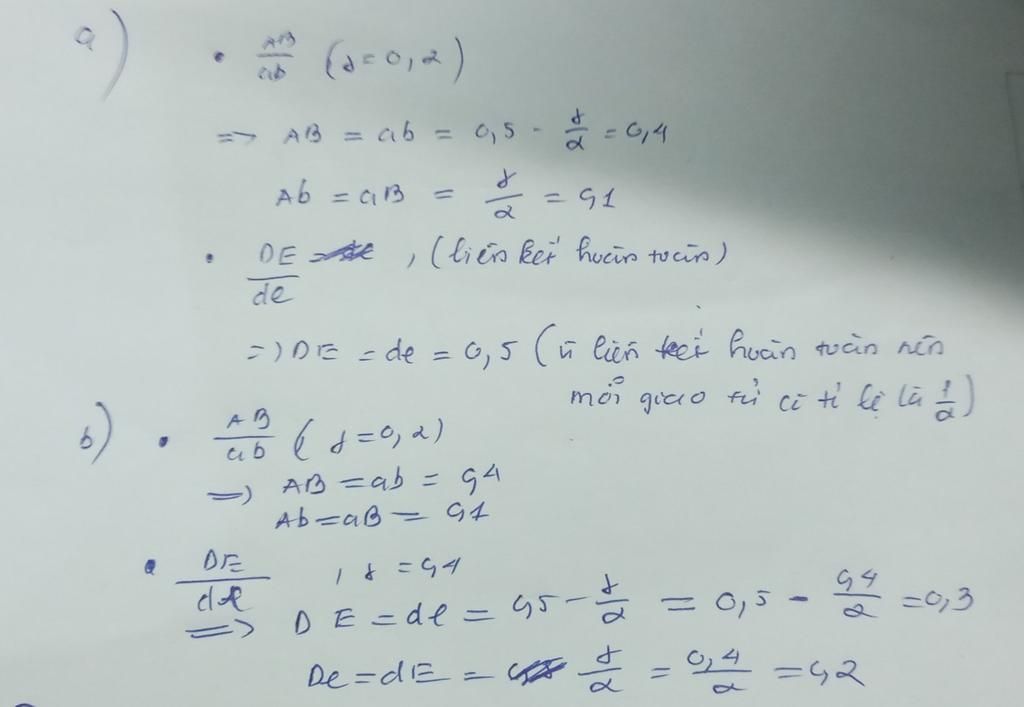 a)
• AB/ab (f = 0,2)
=> AB = ab = 0,5 - f/2 = 0,4
Ab = aB = f/2 = 0,1
• DE/de , (liên kết hoàn toàn)
=> DE = de = 0,5 (vì liên kết hoàn toàn nên
mỗi giao tử có tỉ lệ là 1/2)
b) • AB/ab (f = 0,2)
=> AB = ab = 0,4
Ab = aB = 0,1
• DE/de , f = 0,4
=> DE = de = 0,5 - f/2 = 0,5 - 0,4/2 = 0,3
De = dE = f/2 = 0,4/2 = 0,2